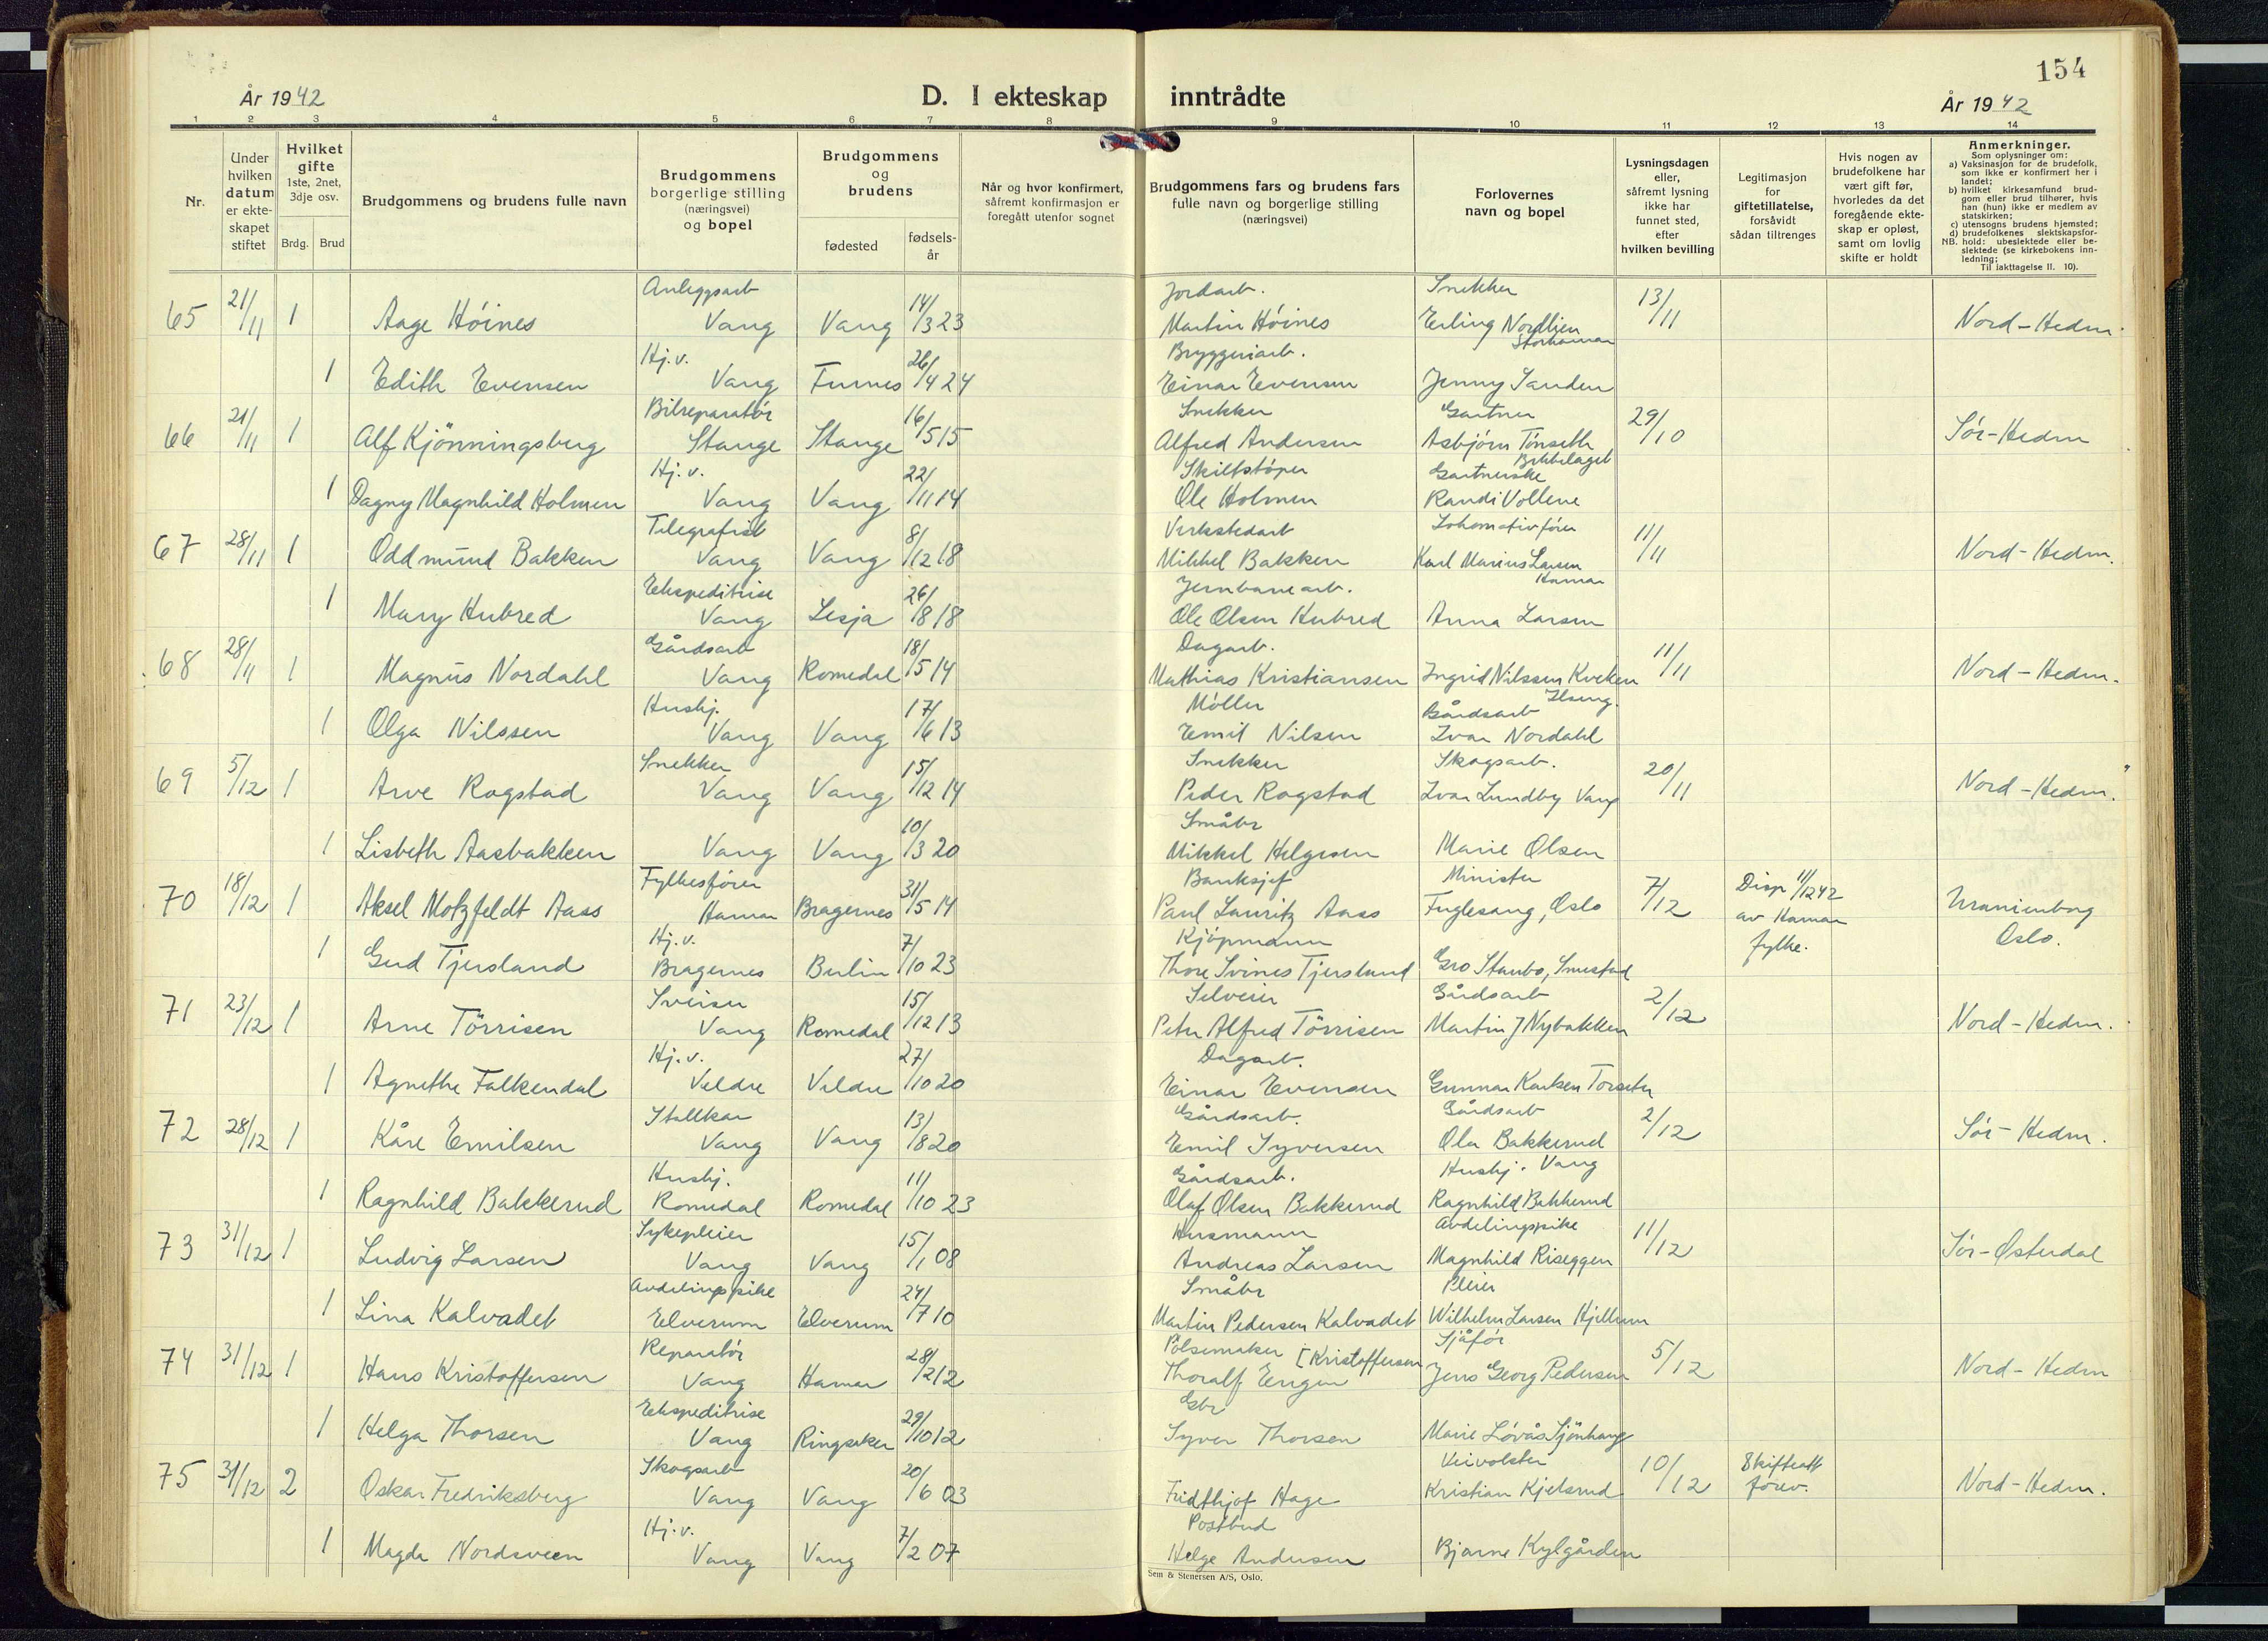 154
År 1942
D. I ekteskap inntrådte
År 1942
1 2 3 4 5 6 7 8 9 10 11 12 13 14
Nr.
Under hvilken datum er ekteskapet stiftet
Hvilket gifte 1ste, 2net, 3dje osv.
Brdg. Brud
Brudgommens og brudens fulle navn
Brudgommens borgerlige stilling (næringsvei) og bopel
Brudgommens og brudens
fødested
fødselsår
Når og hvor konfirmert, såfremt konfirmasjon er foregått utenfor sognet
Brudgommens fars og brudens fars fulle navn og borgerlige stilling (næringsvei)
Forlovernes navn og bopel
Lysningsdagen eller, såfremt lysning ikke har funnet sted, efter hvilken bevilling
Legitimasjon for giftetillatelse, forsåvidt sådan tiltrenges
Hvis nogen av brudefolkene har vært gift før, hvorledes da det foregående ekteskap er opløst, samt om lovlig skifte er holdt
Anmerkninger.
Som oplysninger om:
a) Vaksinasjon for de brudefolk, som ikke er konfirmert her i landet;
b) hvilket kirkesamfund brudgom eller brud tilhører, hvis han (hun) ikke er medlem av statskirken;
c) utensogns brudens hjemsted;
d) brudefolkenes slektskapsforhold: ubeslektede eller beslektede (se kirkebokens innledning;
NB. Til iakttagelse II. 10).
65 21/11 1 Aage Höines Anleggsarb Vang Vang 14/3 23 Jordarb. Martin Höines Snekker Erling Nordlien Storhamar 13/11 Nord-Hedm.
1 Edith Evensen Hj.v. Vang Furnes 26/4 24 Bryggeriarb. Einar Evensen Jenny Sanden
66 21/11 1 Alf Kjönningsberg Bilreparatör Stange Stange 16/5 15 Snekker Alfred Andersen Gartner Asbjörn Tönseth Bekkelaget 29/10 Sör-Hedm
1 Dagny Magnhild Holmen Hj.v. Vang Vang 22/11 14 Ole Holmen Gartnerske Randi Vollene
67 28/11 1 Oddmund Bakken Telegrafist Vang Vang 8/12 18 Verkstedarb Mikkel Bakken Lokomotivförer Karl Marius Larsen Hamar 11/11 Nord-Hedm.
1 Mary Hubred Ekspeditrise Vang Lesja 26/8 18 Jernbanearb. Ole Olsen Hubred Anna Larsen
68 28/11 1 Magnus Nordahl Gårdsarb Vang Romedal 18/5 14 Dagarb. Mathias Kristiansen Ingrid Nilssen Kveken Ilseng. 11/11 Nord-Hedm.
1 Olga Nilssen Hushj. Vang Vang 17/6 13 Möller Emil Nilsen Gårdsarb Ivar Nordahl
69 5/12 1 Arve Rogstad Snekker Vang Vang 15/12 14 Snekker Peder Rogstad Skogsarb. Ivar Lundby Vang 20/11 Nord-Hedm.
1 Lisbeth Aasbakken Vang Vang 10/3 20 Småbr Mikkel Helgesen Marie Olsen
70 18/12 1 Aksel Motzfeldt Aass Fylkesförer Hamar Bragernes 31/5 14 Banksjef Paul Lauritz Aass Minister Fuglesang, Oslo 7/12 Disp 11/12 42 av Hamar fylke. Uranienborg Oslo.
1 Gerd Tjersland Hj.v. Bragernes Berlin 7/10 23 Kjöpmann Thore Svines Tjersland Gro Staubo, Smestad
71 23/12 1 Arne Törrisen Sveiser Vang Romedal 15/12 13 Selveier Peter Alfred Törrisen Gårdsarb Martin J Nybakken 2/12 Nord-Hedm.
1 Agnethe Falkendal Hj.v. Veldre Veldre 27/10 20 Dagarb. Einar Evensen Gunnar Karlsen Torseter
72 28/12 1 Kåre Emilsen Stallkar Vang Vang 13/8 20 Gårdsarb. Emil Syversen Gårdsarb Ola Bakkerud 2/12 Sör-Hedm.
1 Ragnhild Bakkerud Hushj. Romedal Romedal 11/10 23 Gårdsarb. Olaf Olsen Bakkerud Hushj. Vang Ragnhild Bakkerud
73 31/12 1 Ludvig Larsen Sykepleier Vang Vang 15/1 08 Husmann Andreas Larsen Avdelingspike Magnhild Riseggen 11/12 Sör-Østerdal
1 Lina Kalvadet Avdelingspike Elverum Elverum 24/7 10 Småbr Martin Pedersen Kalvadet Pleier Wilhelm Larsen Hjellum
74 31/12 1 Hans Kristoffersen Reparatör Vang Hamar 28/2 12 Pölsemaker Thoralf Engen [Kristoffersen Sjåför Jens Georg Pedersen 5/12 Nord-Hedm
1 Helga Thorsen Ekspeditrise Vang Ringsaker 29/10 12 Gbr Syver Thorsen Marie Lövås
75 31/12 2 Oskar Fredriksberg Skogsarb Vang Vang 20/6 03 Fridthjof Hage Veivokter Kristian Kjelsrud 10/12 Skifteatt forev. Nord-Hedm.
1 Magda Nordsveen Hj.v. Vang Vang 7/2 07 Postbud Helge Andersen Bjarne Kylgården
Sem & Stenersen A/S, Oslo.